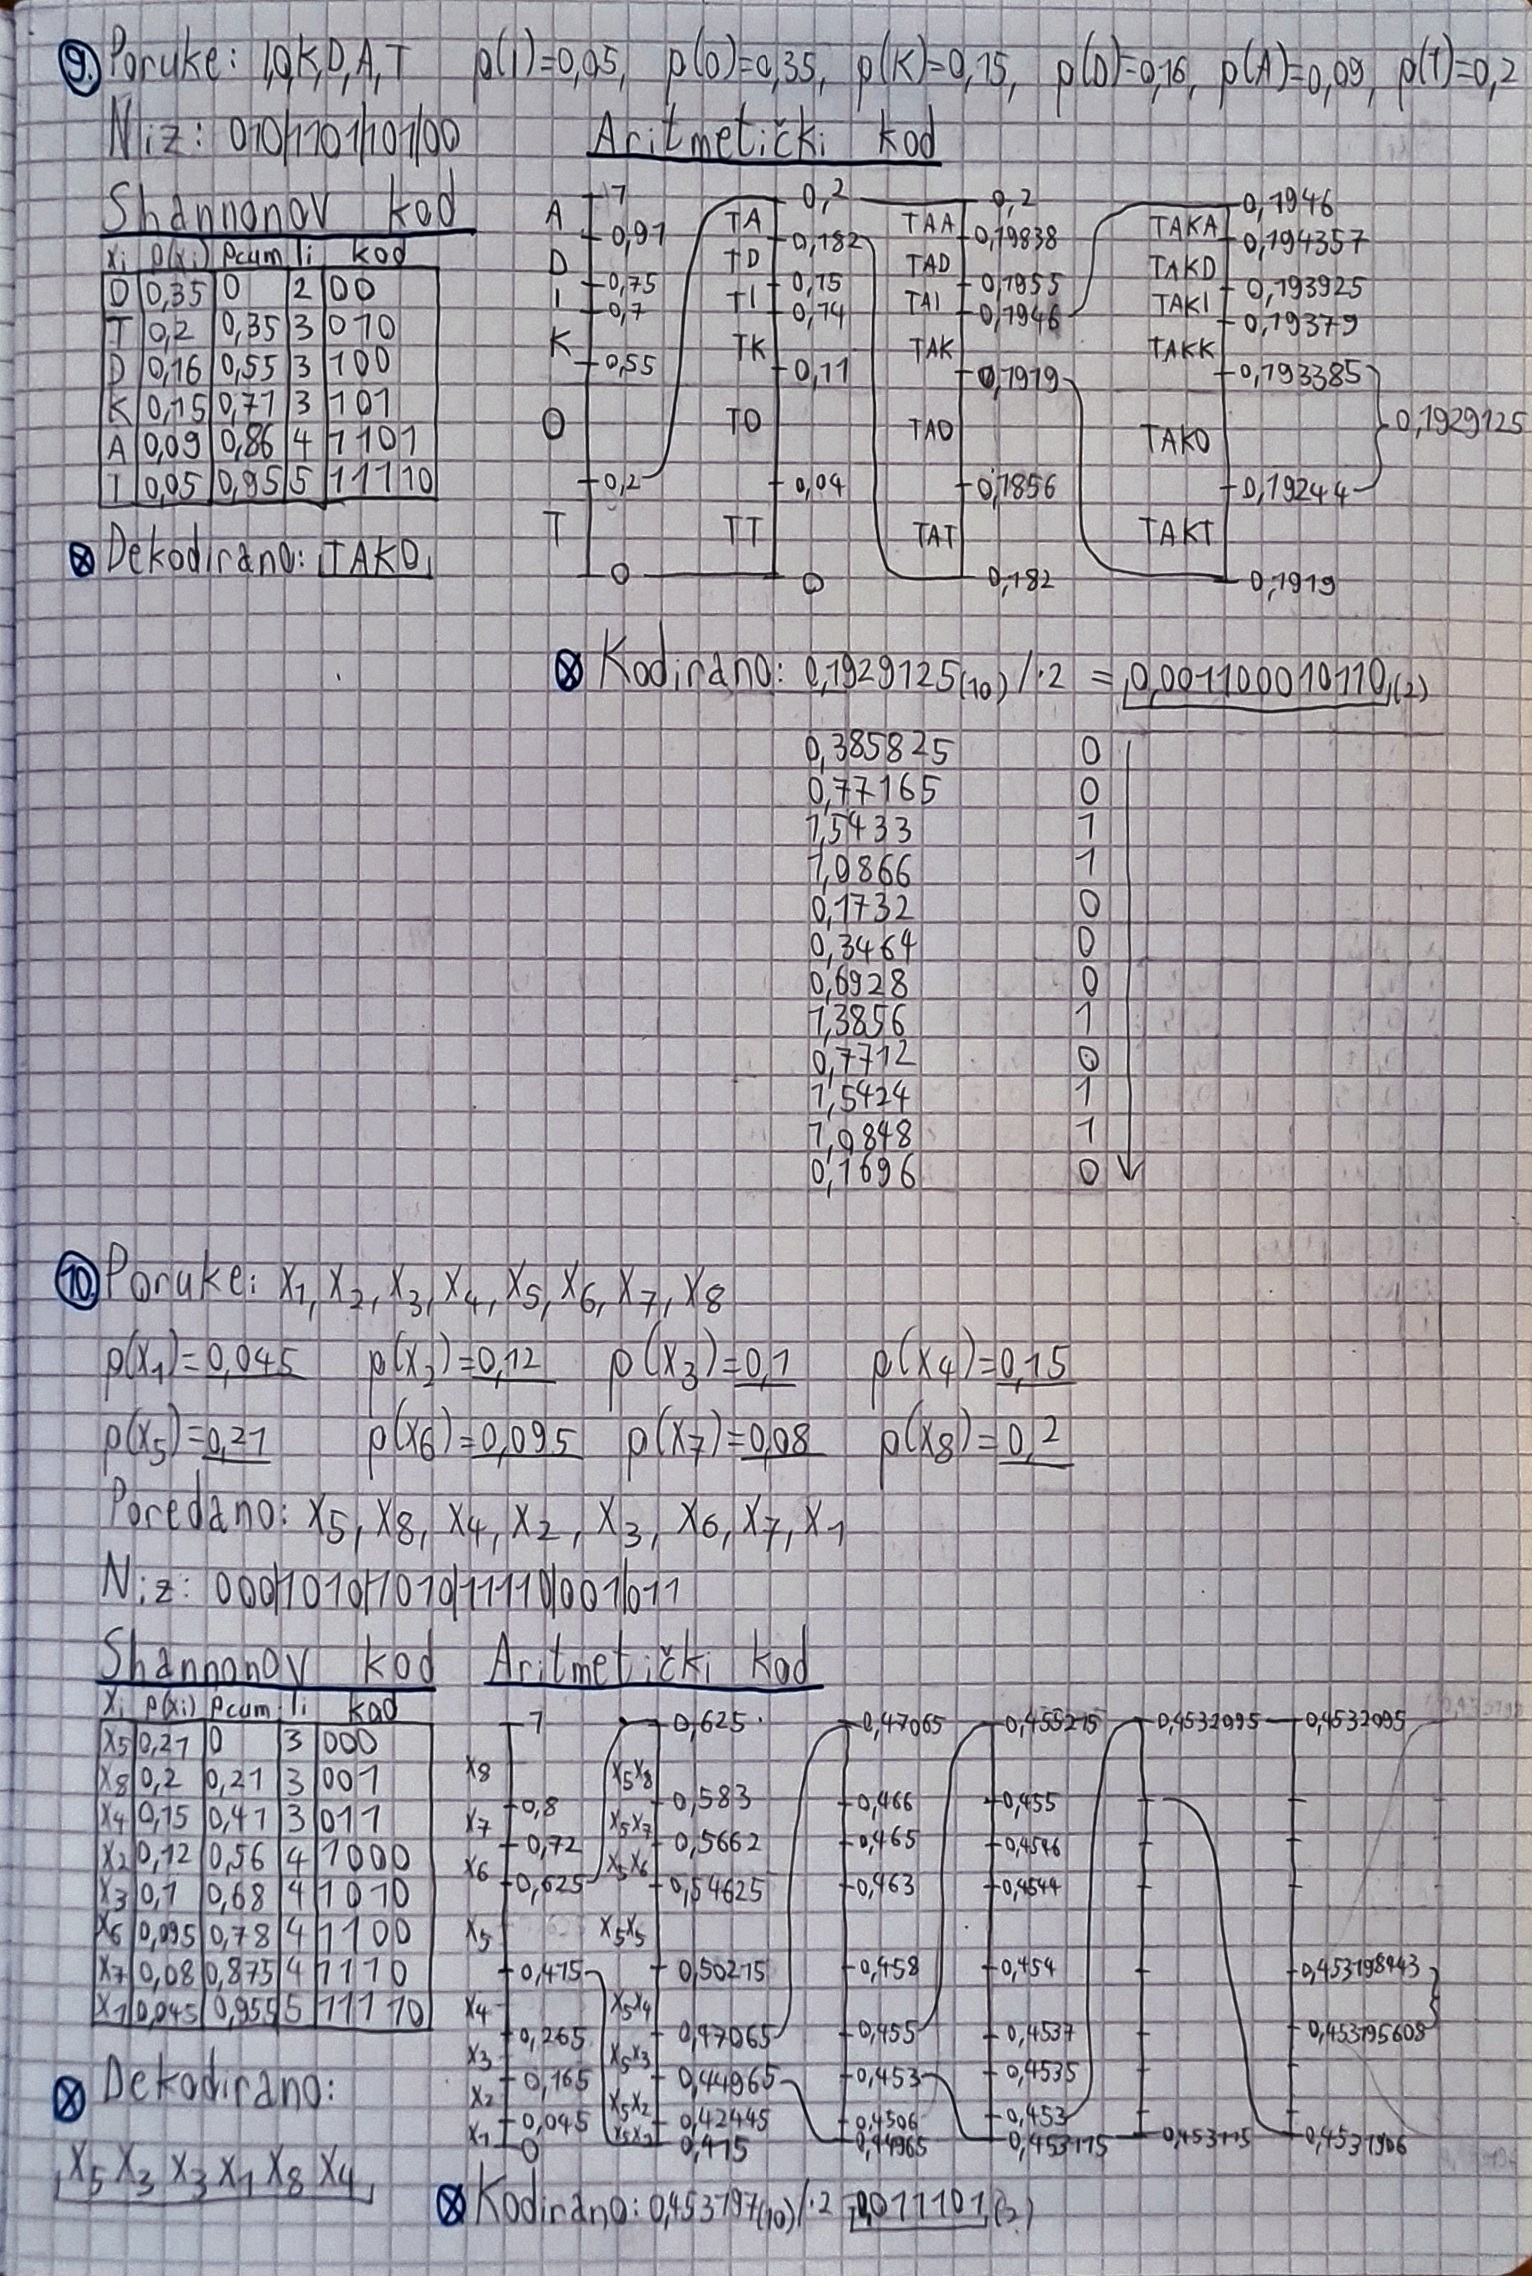 9. Poruke: I,O,K,D,A,T p(I)=0,05, p(O)=0,35, p(K)=0,15, p(D)=0,16, p(A)=0,09, p(T)=0,2
Niz: 010/1101/101/00 Aritmetički kod
Shannonov kod
xi p(xi) Pcum li kod
O 0,35 0 2 00
T 0,2 0,35 3 010
D 0,16 0,55 3 100
K 0,15 0,71 3 101
A 0,09 0,86 4 1101
I 0,05 0,95 5 11110
Dekodirano: TAKO
A D I K O T
1 0,91 0,75 0,7 0,55 0,2 0
TA TD TI TK TO TT
0,2 0,182 0,15 0,14 0,11 0,04 0
TAA TAD TAI TAK TAO TAT
0,2 0,19838 0,1955 0,1946 0,1919 0,1856 0,182
TAKA TAKD TAKI TAKK TAKO TAKT
0,1946 0,194357 0,193925 0,19379 0,193385 0,19244 0,1919
0,1929125
Kodirano: 0,1929125(10) /·2 = 0,001100010110(2)
0,385825 0
0,77165 0
1,5433 1
1,0866 1
0,1732 0
0,3464 0
0,6928 0
1,3856 1
0,7712 0
1,5424 1
1,0848 1
0,1696 0
10. Poruke: x1, x2, x3, x4, x5, x6, x7, x8
p(x1)=0,045 p(x2)=0,12 p(x3)=0,1 p(x4)=0,15
p(x5)=0,21 p(x6)=0,095 p(x7)=0,08 p(x8)=0,2
Poredano: x5, x8, x4, x2, x3, x6, x7, x1
Niz: 000/1010/1010/11110/001/011
Shannonov kod Aritmetički kod
xi p(xi) Pcum li kod
x5 0,21 0 3 000
x8 0,2 0,21 3 001
x4 0,15 0,41 3 011
x2 0,12 0,56 4 1000
x3 0,1 0,68 4 1010
x6 0,095 0,78 4 1100
x7 0,08 0,875 4 1110
x1 0,045 0,955 5 11110
Dekodirano:
x5 x3 x3 x1 x8 x4
x8 x7 x6 x5 x4 x3 x2 x1
1 0,8 0,72 0,625 0,415 0,265 0,165 0,045 0
x5x8 x5x7 x5x6 x5x5 x5x4 x5x3 x5x2 x5x1
0,625 0,583 0,5662 0,54625 0,50215 0,47065 0,44965 0,42445 0,415
0,47065 0,466 0,465 0,463 0,458 0,455 0,453 0,4506 0,44965
0,455215 0,455 0,4546 0,4544 0,454 0,4537 0,4535 0,453 0,453115
0,4532095 0,453115
0,4532095 0,453198943 0,453195608 0,4531906
Kodirano: 0,453197(10) /·2 0,011101(2)